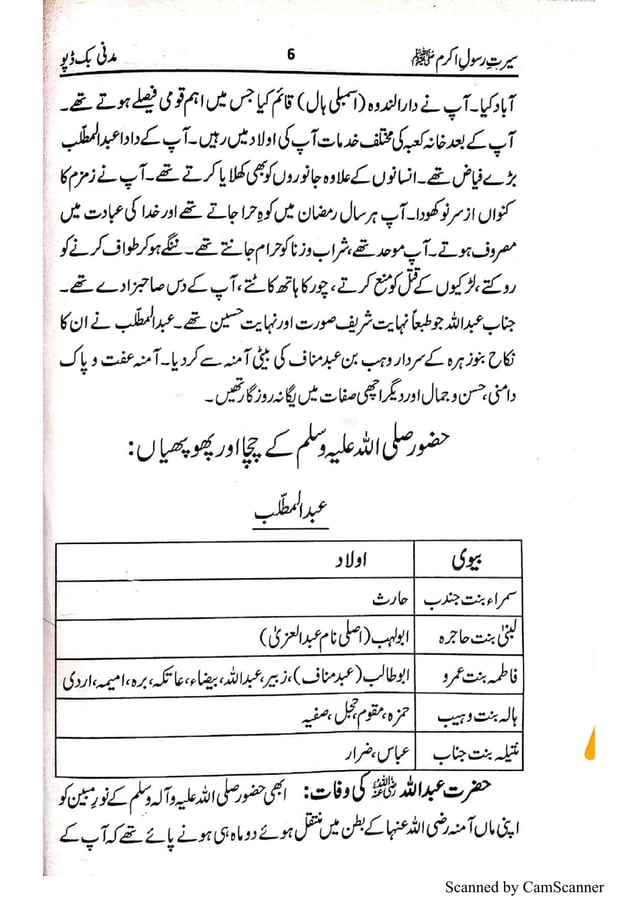 سیرتِ رسولِ اکرم ﷺ 6 مدنی بک ڈپو
آباد کیا۔ آپ نے دارالندوہ (اسمبلی ہال) قائم کیا جس میں اہم قومی فیصلے ہوتے تھے۔
آپ کے بعد خانہ کعبہ کی مختلف خدمات آپ کی اولاد میں رہیں۔ آپ کے دادا عبدالمطلب
بڑے فیاض تھے۔ انسانوں کے علاوہ جانوروں کو بھی کھلایا کرتے تھے۔ آپ نے زمزم کا
کنواں ازسرنو کھودا۔ آپ ہر سال رمضان میں کوہِ حرا جاتے تھے اور خدا کی عبادت میں
مصروف ہوتے۔ آپ موحد تھے، شراب و زنا کو حرام جانتے تھے۔ ننگے ہو کر طواف کرنے کو
روکتے، لڑکیوں کے قتل کو منع کرتے، چور کا ہاتھ کاٹتے، آپ کے دس صاحبزادے تھے۔
جناب عبداللہ جو طبعاً نہایت شریف صورت اور نہایت حسین تھے۔ عبدالمطّلب نے ان کا
نکاح بنو زہرہ کے سردار وہب بن عبد مناف کی بیٹی آمنہ سے کر دیا۔ آمنہ عفت و پاک
دامنی، حسن و جمال اور دیگر اچھی صفات میں یگانہ روزگار تھیں۔
حضور صلی اللہ علیہ وسلم کے چچا اور پھوپھیاں:
عبدالمطّلب
بیوی اولاد
سمراء بنت جندب حارث
لبنیٰ بنت حاجرہ ابولہب (اصلی نام عبدالعزیٰ)
فاطمہ بنت عمرو ابوطالب (عبد مناف)، زبیر، عبداللہ، بیضاء، عاتکہ، برہ، امیمہ، اردی
ہالہ بنت وہیب حمزہ، مقوم، حجل، صفیہ
نتیلہ بنت جناب عباس، ضرار
حضرت عبداللہ رضی اللہ عنہ کی وفات: ابھی حضور صلی اللہ علیہ وآلہ وسلم کے نورِ مبین کو
اپنی ماں آمنہ رضی اللہ عنہا کے بطن میں منتقل ہوئے دو ماہ ہی ہونے پائے تھے کہ آپ کے
Scanned by CamScanner